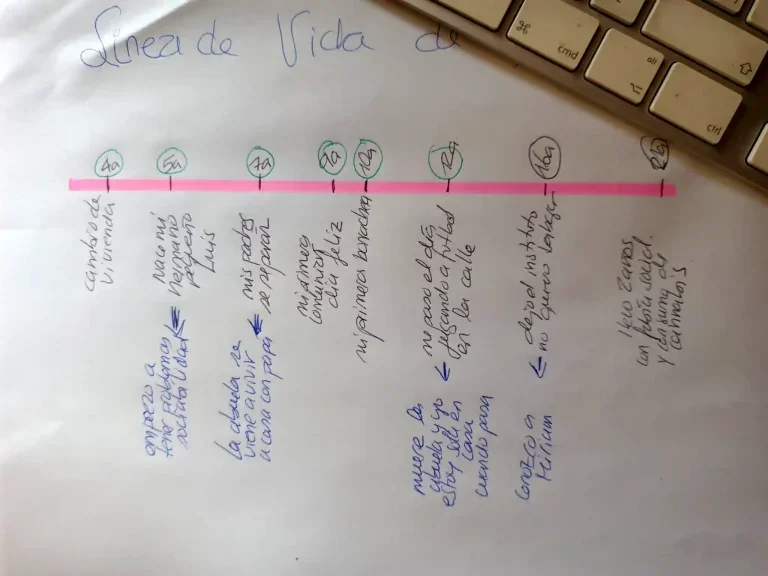 Linea de Vida de
4a
5a
7a
9a
10a
12a
16a
21a
cambio de
vivienda
Nace mi
hermano
pequeño
Luis
empiezo a
tener problemas
sociabilidad
mis padres
se separan
La abuela se
viene a vivir
a casa con papa
mi primera
comunion
dia feliz
mi primera borrachera
me paso el día
jugando a futbol
en la calle
muere la
abuela y yo
estoy solo en
casa
cuando pasa
dejo el instituto
no quiero trabajar
conozco a
Miriam
llevo 2 años
con fobia social
y consumo de
cannabis
cmd
alt
ctrl